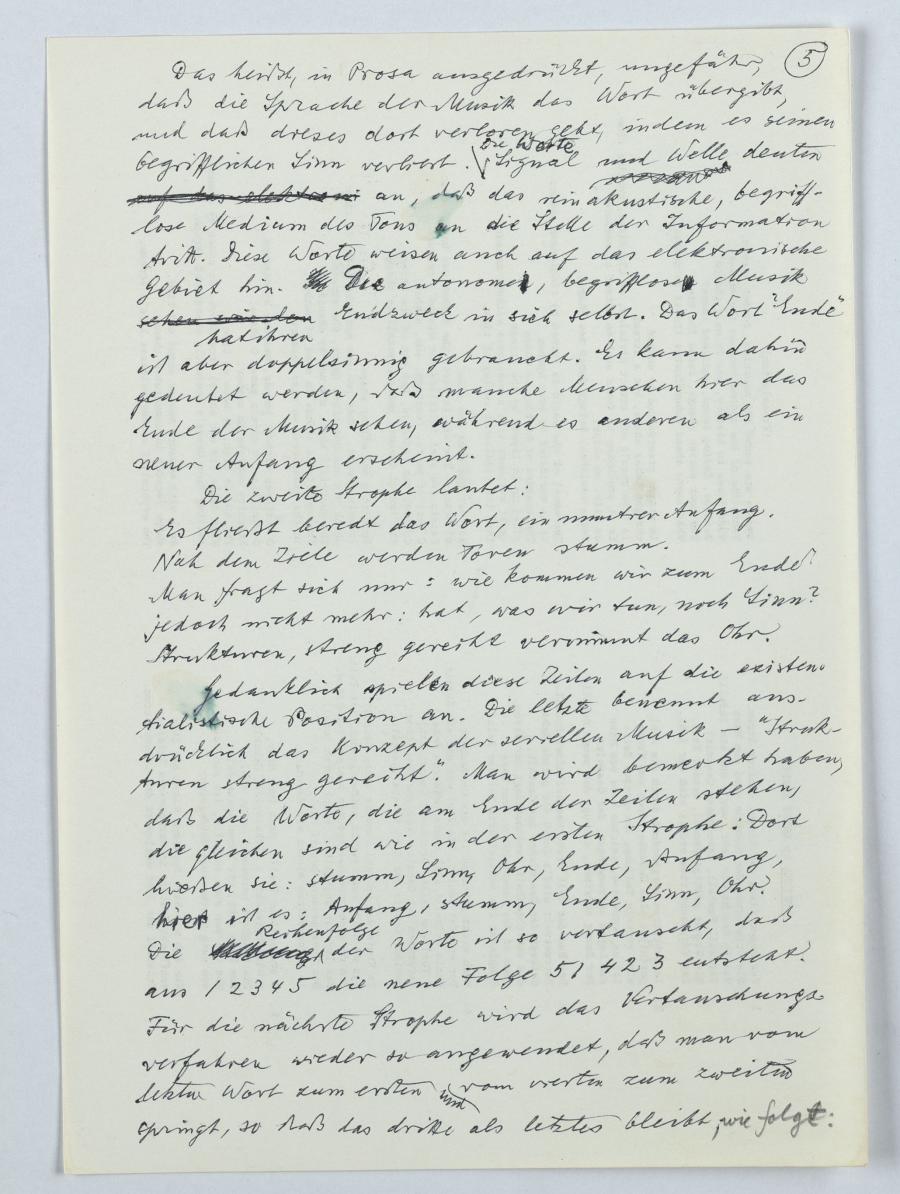 5
Das heißt, in Prosa ausgedrückt, ungefähr,
daß die Sprache der Musik das Wort übergibt,
und daß dieses dort verloren geht, indem es seinen
begrifflichen Sinn verliert. Die Worte Signal und Welle deuten
auf das elektroni an, daß das rein akustische, begriff-
lose Medium des Tons an die Stelle der Information
tritt. Diese Worte weisen auch auf das elektronische
Gebiet hin. Die autonome, begrifflose Musik
sehen wie den Endzweck in sich selbst. Das Wort "Ende"
hat ihren
ist aber doppelsinnig gebraucht. Es kann dahin
gedeutet werden, daß manche Menschen hier das
Ende der Musik sehen, während es anderen als ein
neuer Anfang erscheint.
Die zweite Strophe lautet:
Es fließt beredt das Wort, ein muntrer Anfang.
Nah dem Ziele werden Toren stumm.
Man fragt sich nur: wie kommen wir zum Ende?
jedoch nicht mehr: hat, was wir tun, noch Sinn?
Strukturen, streng gereiht vernimmt das Ohr.
Gedanklich spielen diese Zeilen auf die existen-
tialistische Position an. Die letzte benennt aus-
drücklich das Konzept der seriellen Musik — "Struk-
turen streng gereiht". Man wird bemerkt haben,
daß die Worte, die am Ende der Zeilen stehen,
die gleichen sind wie in der ersten Strophe: Dort
hießen sie: stumm, Sinn, Ohr, Ende, Anfang,
hier ist es: Anfang, stumm, Ende, Sinn, Ohr.
Reihenfolge
Die der Worte ist so vertauscht, daß
aus 1 2 3 4 5 die neue Folge 5 1 4 2 3 entsteht.
Für die nächste Strophe wird das Vertauschungs-
verfahren wieder so angewendet, daß man vom
letzten Wort zum ersten und vom vierten zum zweiten
springt, so daß das dritte als letztes bleibt, wie folgt: